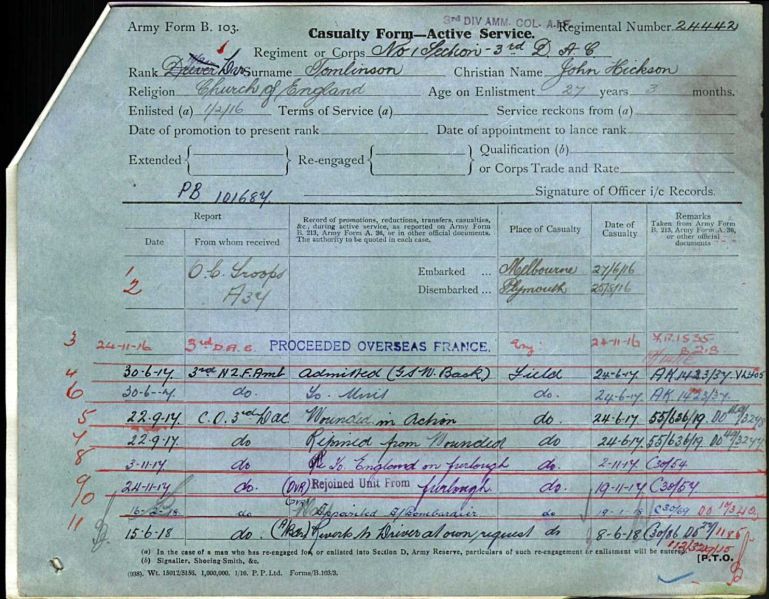 Army Form B. 103.
3rd DIV AMM. COL- A.I.F.
Casualty Form—Active Service.
Regimental Number 24442
Regiment or Corps No 1 Section - 3rd D. A. C.
Rank Driver Dvr Surname Tomlinson Christian Name John Hickson
Religion Church of England Age on Enlistment 27 years 3 months.
Enlisted (a) 1/2/16 Terms of Service (a) Service reckons from (a)
Date of promotion to present rank Date of appointment to lance rank
Extended Re-engaged Qualification (b)
or Corps Trade and Rate
PB 101684 Signature of Officer i/c Records.
Report
Date From whom received
Record of promotions, reductions, transfers, casualties, &c., during active service, as reported on Army Form B. 213, Army Form A. 36, or in other official documents. The authority to be quoted in each case.
Place of Casualty
Date of Casualty
Remarks
Taken from Army Form B. 213, Army Form A. 36, or other official documents
1 O.C. Troops Embarked ... Melbourne 27/6/16
2 A34 Disembarked ... Plymouth 25/8/16
3 24-11-16 3rd D.A.C. PROCEEDED OVERSEAS FRANCE. Eng 24-11-16
4 30-6-17. 3rd N Z.F. Amb admitted (G.S.W. Back) Field 24-6-17. AK 1423/37.
6 30-6-17 do. To do. 24-6-17. AK 1423/37
5 22.9.17. C.O. 3rd Dac Wounded in Action do. 24-6-17. 55/636/19. DO
7 22.9.17 do Rejoined from Wounded do. 24-6-17. 55/636/19. DO
8 3-11-17 do To England on furlough do. 2-11-17 C30/54
9 24-11-17 do. (DVR) Rejoined Unit From furlough do. 19-11-17 C30/57
10 16-2-18 do Appointed Bombardier do 19-1-18 C30/69
11 15-6-18 do. Reverts to Driver at own request do 8-6-18 C30/86
(a) In the case of a man who has re-engaged for, or enlisted into Section D, Army Reserve, particulars of such re-engagement or enlistment will be entered.
(b) Signaller, Shoeing-Smith, &c.
[P.T.O.